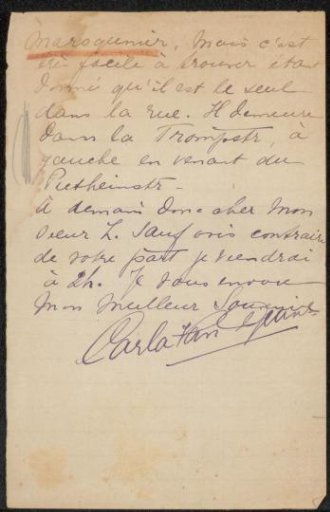 maroquinier. Mais c'est
très facile à trouver étant
donné qu'il est le seul
dans la rue. Il demeure
dans la Trompstr, à
gauche en venant du
Pietheinstr.
à demain donc cher Mon
sieur L. Sauf avis contraire
de votre part je viendrai
à 2h. Je vous envoie
mon meilleur Souvenir
Carla van